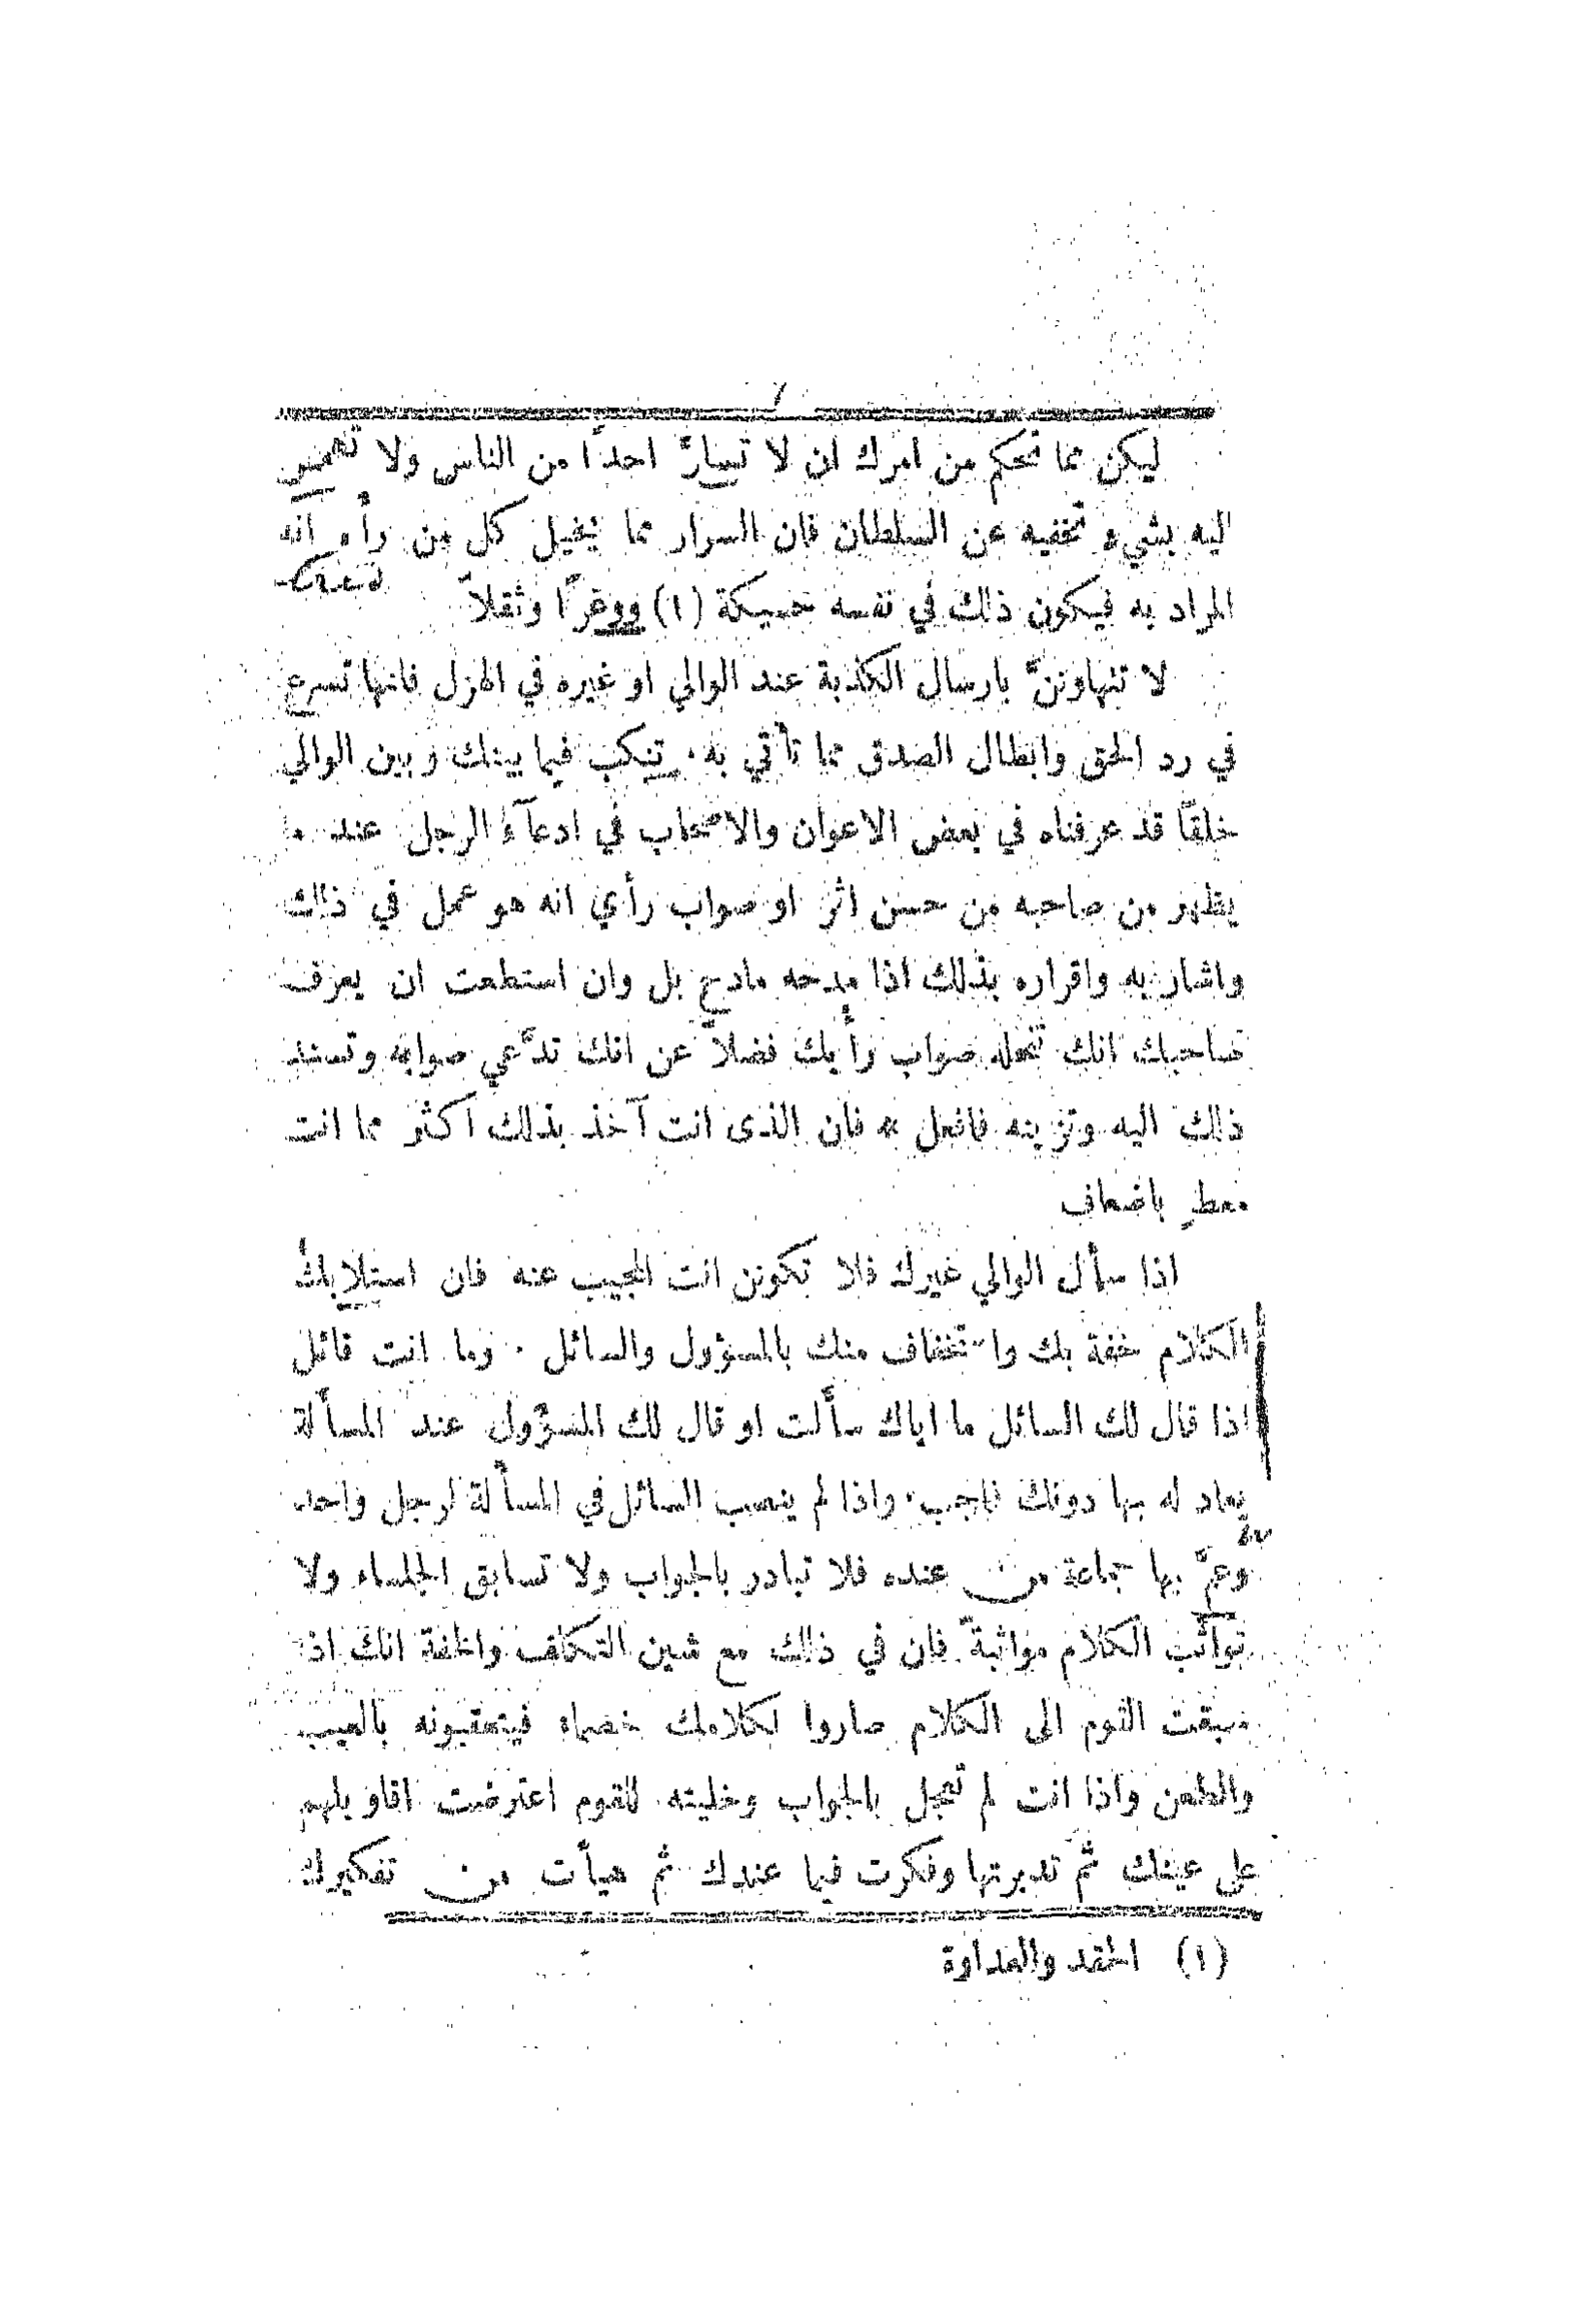 ليكن مما تحكم من امرك ان لا تسارَّ احداً من الناس ولا تهمس
اليه بشيء تخفيه عن السلطان فان السرار مما يخيل كل من رأه انه
المراد به فيكون ذلك في نفسه حسيكة (١) ووغراً وثقلاً
لا تتهاوننَّ بارسال الكذبة عند الوالي او غيره في الهزل فانها تسرع
في رد الحق وابطال الصدق مما تأتي به · تنكب فيما بينك وبين الوالي
خلقاً قد عرفناه في بعض الاعوان والاصحاب في ادعآء الرجل عند ما
يظهر من صاحبه من حسن اثر او صواب رأي انه هو عمل في ذلك
واشار به واقراره بذلك اذا مدحه مادح بل وان استطعت ان يعرف
صاحبك انك تنحله صواب رأيك فضلاً عن انك تدَّعي صوابه وتسند
ذلك اليه وتزينه فافعل * فان الذى انت آخذ بذلك اكثر مما انت
معطٍ باضعاف
اذا سأل الوالي غيرك فلا تكونن انت المجيب عنه فان استلابك
الكلام خفة بك واستخفاف منك بالمسؤول والسائل · وما انت قائل
اذا قال لك السائل ما اياك سألت او قال لك المسؤول عند المسألة
يعاد له بها دونك فاجب · واذا لم ينصب السائل في المسألة لرجل واحد
وعمَّ بها جماعة من عنده فلا تبادر بالجواب ولا تسابق الجلساء ولا
تواثب الكلام مواثبةً فان في ذلك مع شين التكلف والخفة انك اذا
سبقت القوم الى الكلام صاروا لكلامك خصماء فيتعقبونه بالعيب
والطعن واذا انت لم تعجل بالجواب وخليته للقوم اعترضت اقاويلهم
على عينك ثم تدبرتها وفكرت فيما عندك ثم هيأت من تفكيرك
(١) الحقد والعداوة